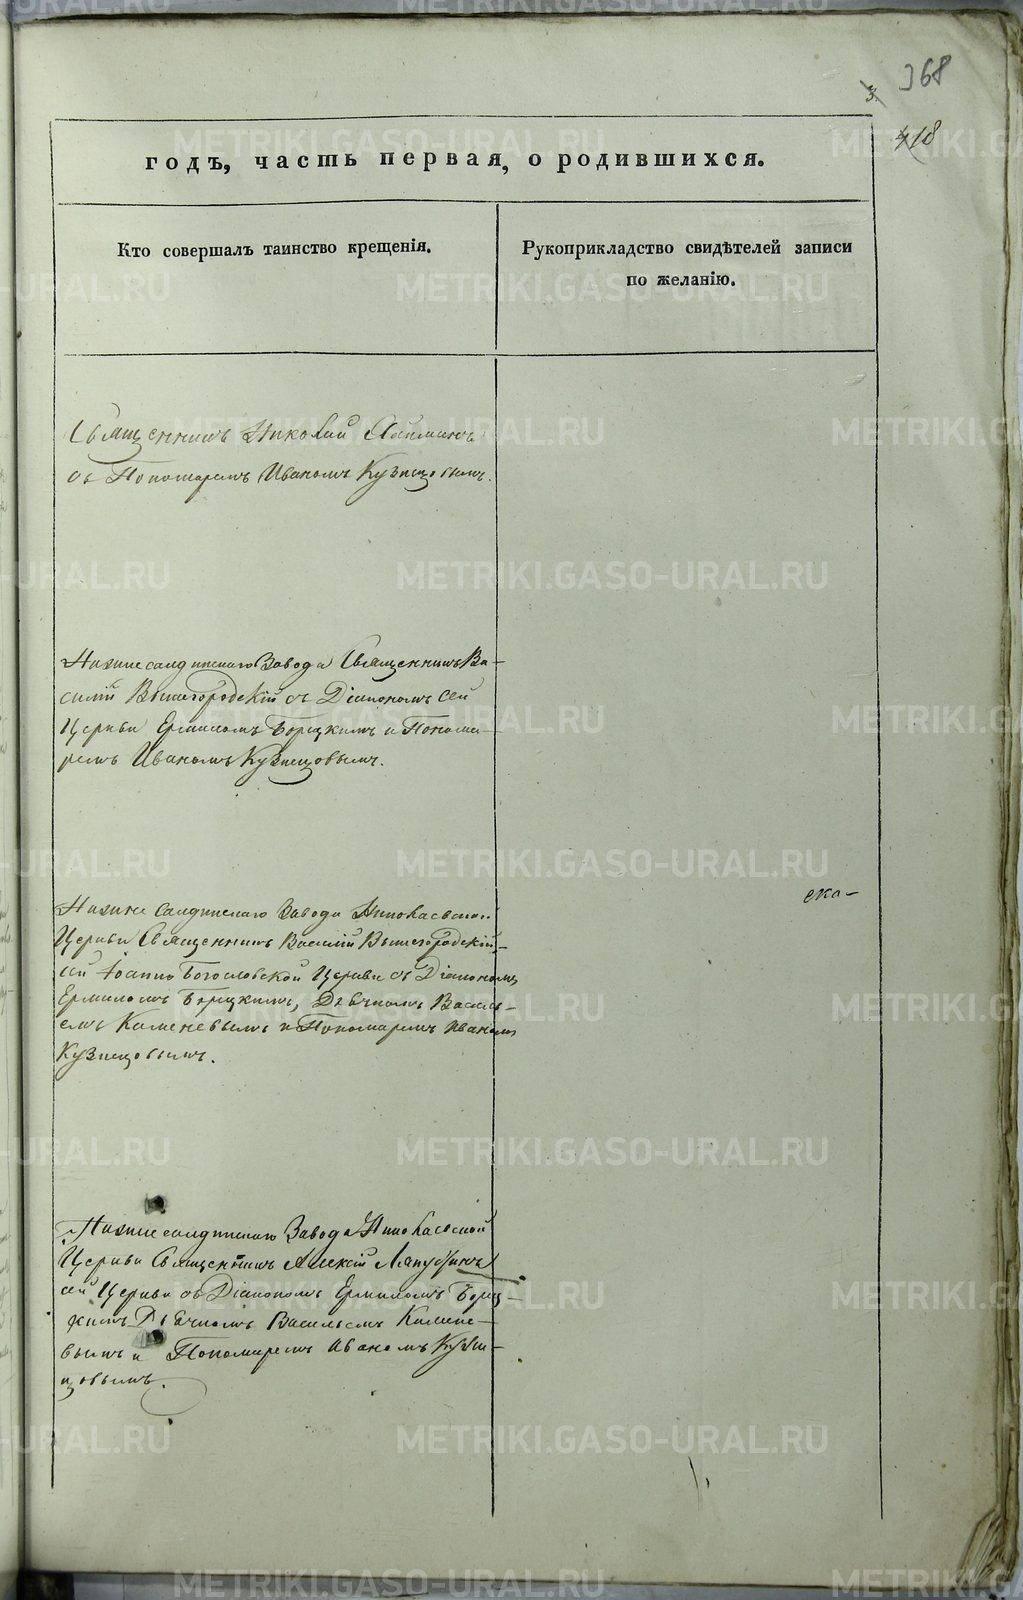 368
3.
418
годъ, часть первая, о родившихся.
Кто совершалъ таинство крещенія.
Рукоприкладство свидѣтелей записи
по желанію.
Священникъ Николай
съ Пономаремъ Иваномъ Кузнецовымъ.
Нижнесалдинскаго Завода Священникъ Ва-
силій Вышегородскій съ Діакономъ сей
Церкви Ермиломъ Борецкимъ и Понома-
ремъ Иваномъ Кузнецовымъ.
Нижне Салдинскаго Завода Николаевской
Церкви Священникъ Василій Вышегородскій,
сей Іоанно Богословской Церкви съ Діакономъ
Ермиломъ Борецкимъ, Дьячкомъ Василь-
емъ Каменевымъ и Пономаремъ Иваномъ
Кузнецовымъ.
ека-
Нижнесалдинскаго Завода Николаевской
Церкви Священникъ Алексій
сей Церкви съ Діакономъ Ермиломъ Борец-
кимъ Дьячкомъ Васильемъ Камене-
вымъ и Пономаремъ Иваномъ Кузне-
цовымъ.
METRIKI.GASO-URAL.RU